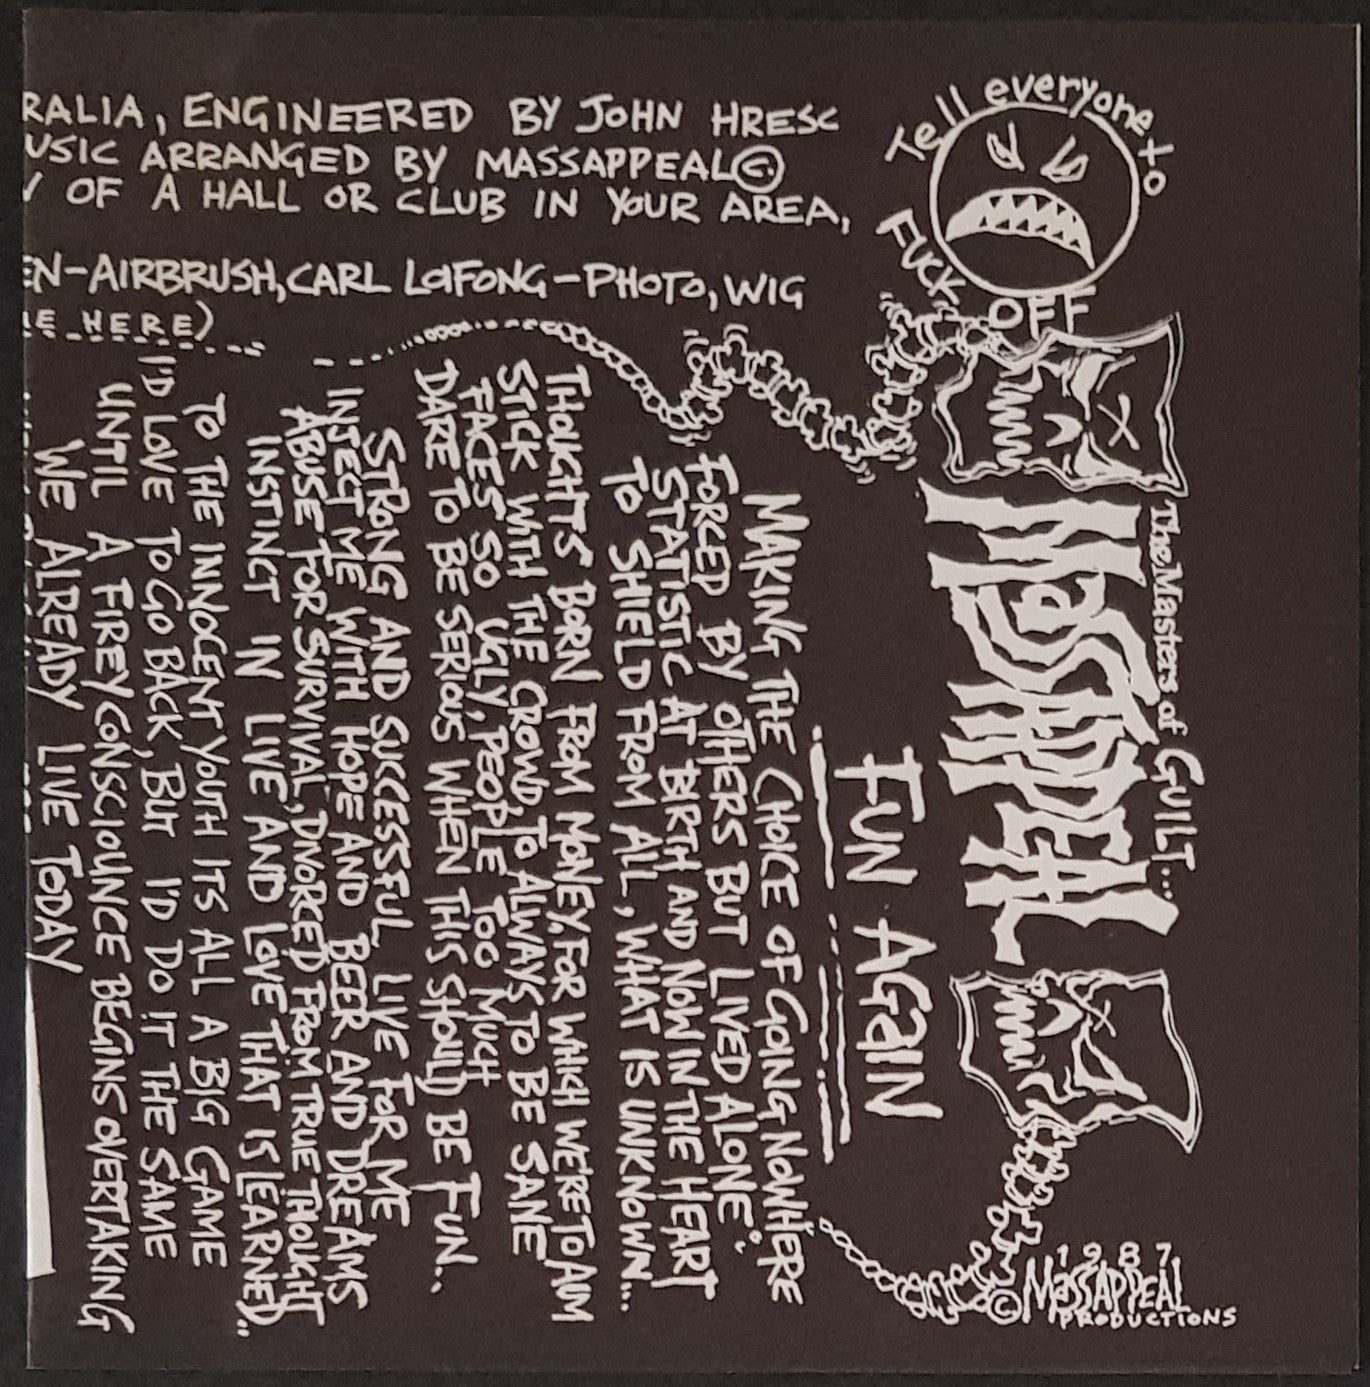 RALIA, ENGINEERED BY JOHN HRESC
USIC ARRANGED BY MASSAPPEAL©
OF A HALL OR CLUB IN YOUR AREA,
EN-AIRBRUSH, CARL LaFONG-PHOTO, WIG
HERE)
Tell everyone to
FUCK OFF
The Masters of GUILT...
MaSSAPPEAL
FUN AGaIN
MAKING THE CHOICE OF GOING NOWHERE
FORCED BY OTHERS BUT LIVED ALONE
STATISTIC AT BIRTH AND NOW IN THE HEART
TO SHIELD FROM ALL, WHAT IS UNKNOWN...
THOUGHTS BORN FROM MONEY, FOR WHICH WE'RE TO AIM
STICK WITH THE CROWD, TO ALWAYS TO BE SANE
FACES SO UGLY, PEOPLE TOO MUCH
DARE TO BE SERIOUS WHEN THIS SHOULD BE FUN..
STRONG AND SUCCESSFUL, LIVE FOR ME
INJECT ME WITH HOPE AND BEER AND DREAMS
ABUSE FOR SURVIVAL, DIVORCED FROM TRUE THOUGHT
INSTINCT IN LIVE AND LOVE THAT IS LEARNED..
TO THE INNOCENT YOUTH ITS ALL A BIG GAME
I'D LOVE TO GO BACK, BUT I'D DO IT THE SAME
UNTIL A FIREY CONSCIOUNCE BEGINS OVERTAKING
WE ALREADY LIVE TODAY
1987.
© MaSSAPPEAL
PRODUCTIONS